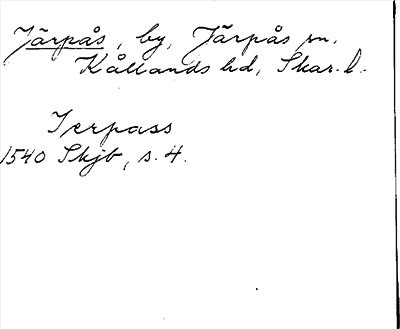 Järpås, by, Järpås sn.
Kållands hd, Skar. l.
Jerpass
1540 Skjb, s. 4.